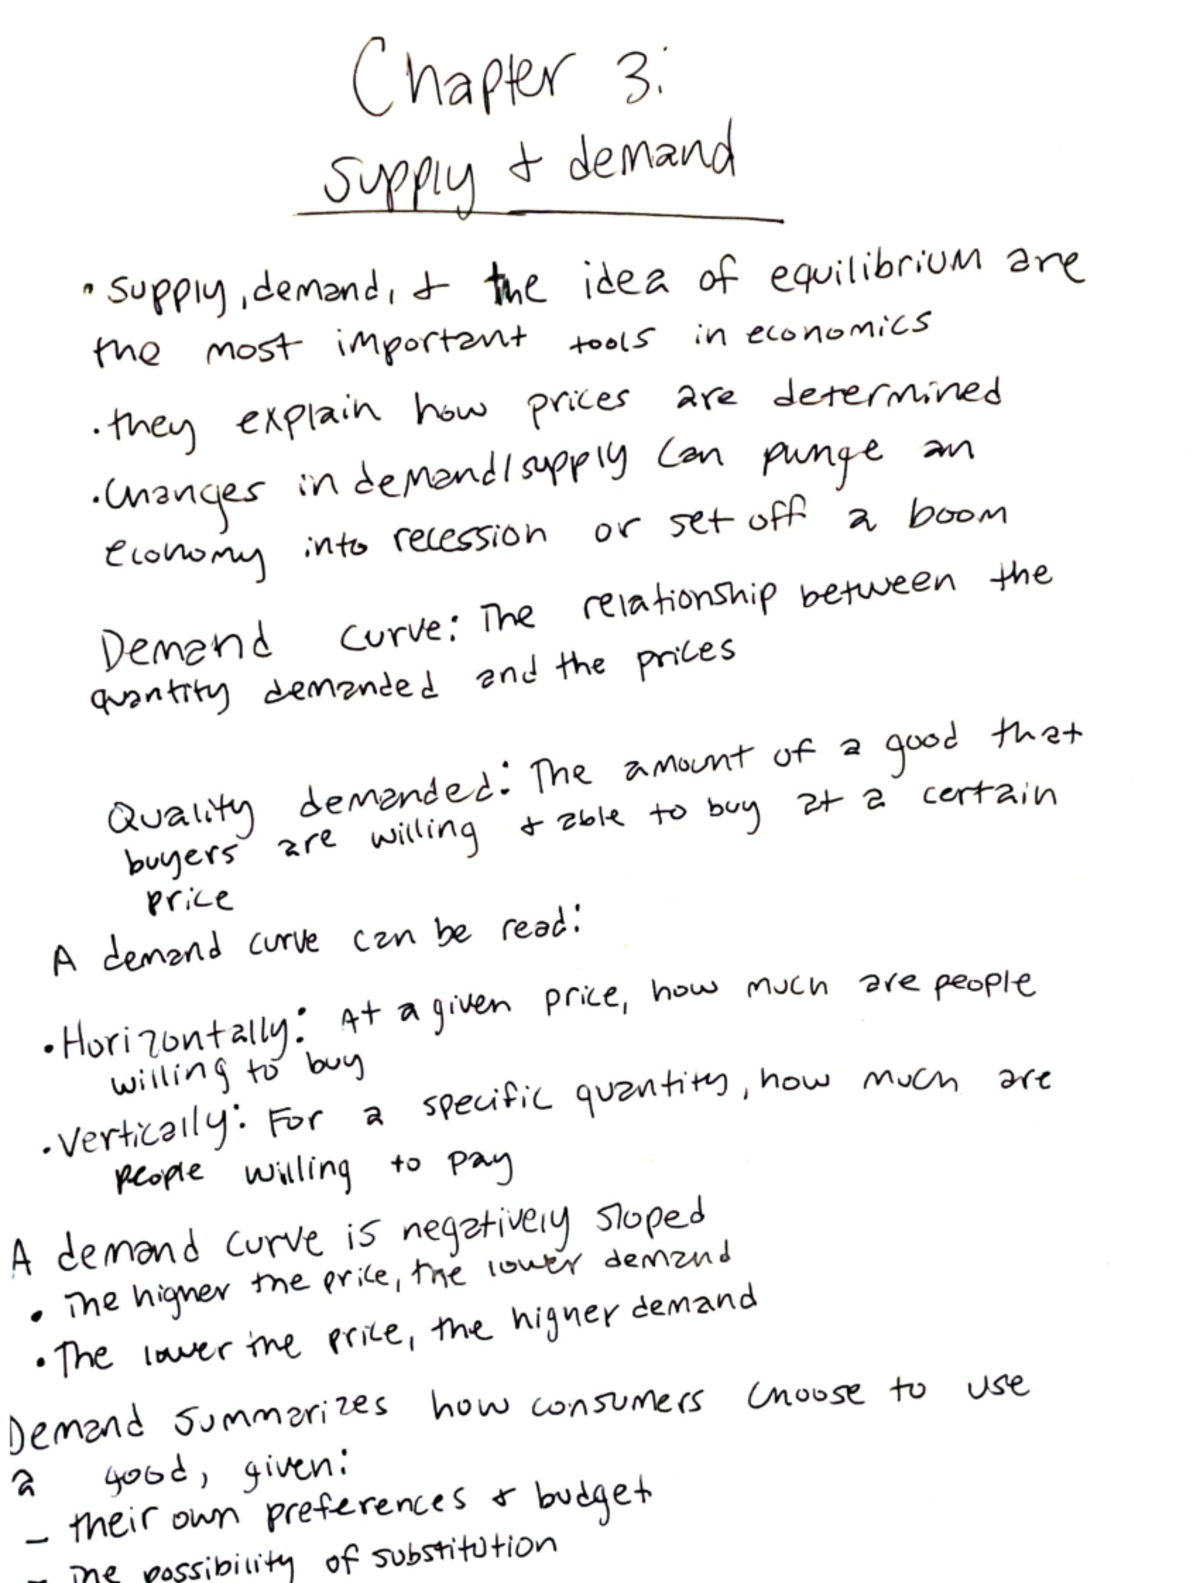 Chapter 3:
supply & demand
• supply, demand, & the idea of equilibrium are
the most important tools in economics
• they explain how prices are determined
• Changes in demand/supply can punge an
economy into recession or set off a boom
Demand curve: The relationship between the
quantity demanded and the prices
Quality demanded: The amount of a good that
buyers are willing & able to buy at a certain
price
A demand curve can be read:
• Horizontally: At a given price, how much are people
willing to buy
• Vertically: For a specific quantity, how much are
people willing to pay
A demand curve is negatively sloped
• The higher the price, the lower demand
• The lower the price, the higher demand
Demand summarizes how consumers choose to use
a good, given:
- their own preferences & budget
- the possibility of substitution